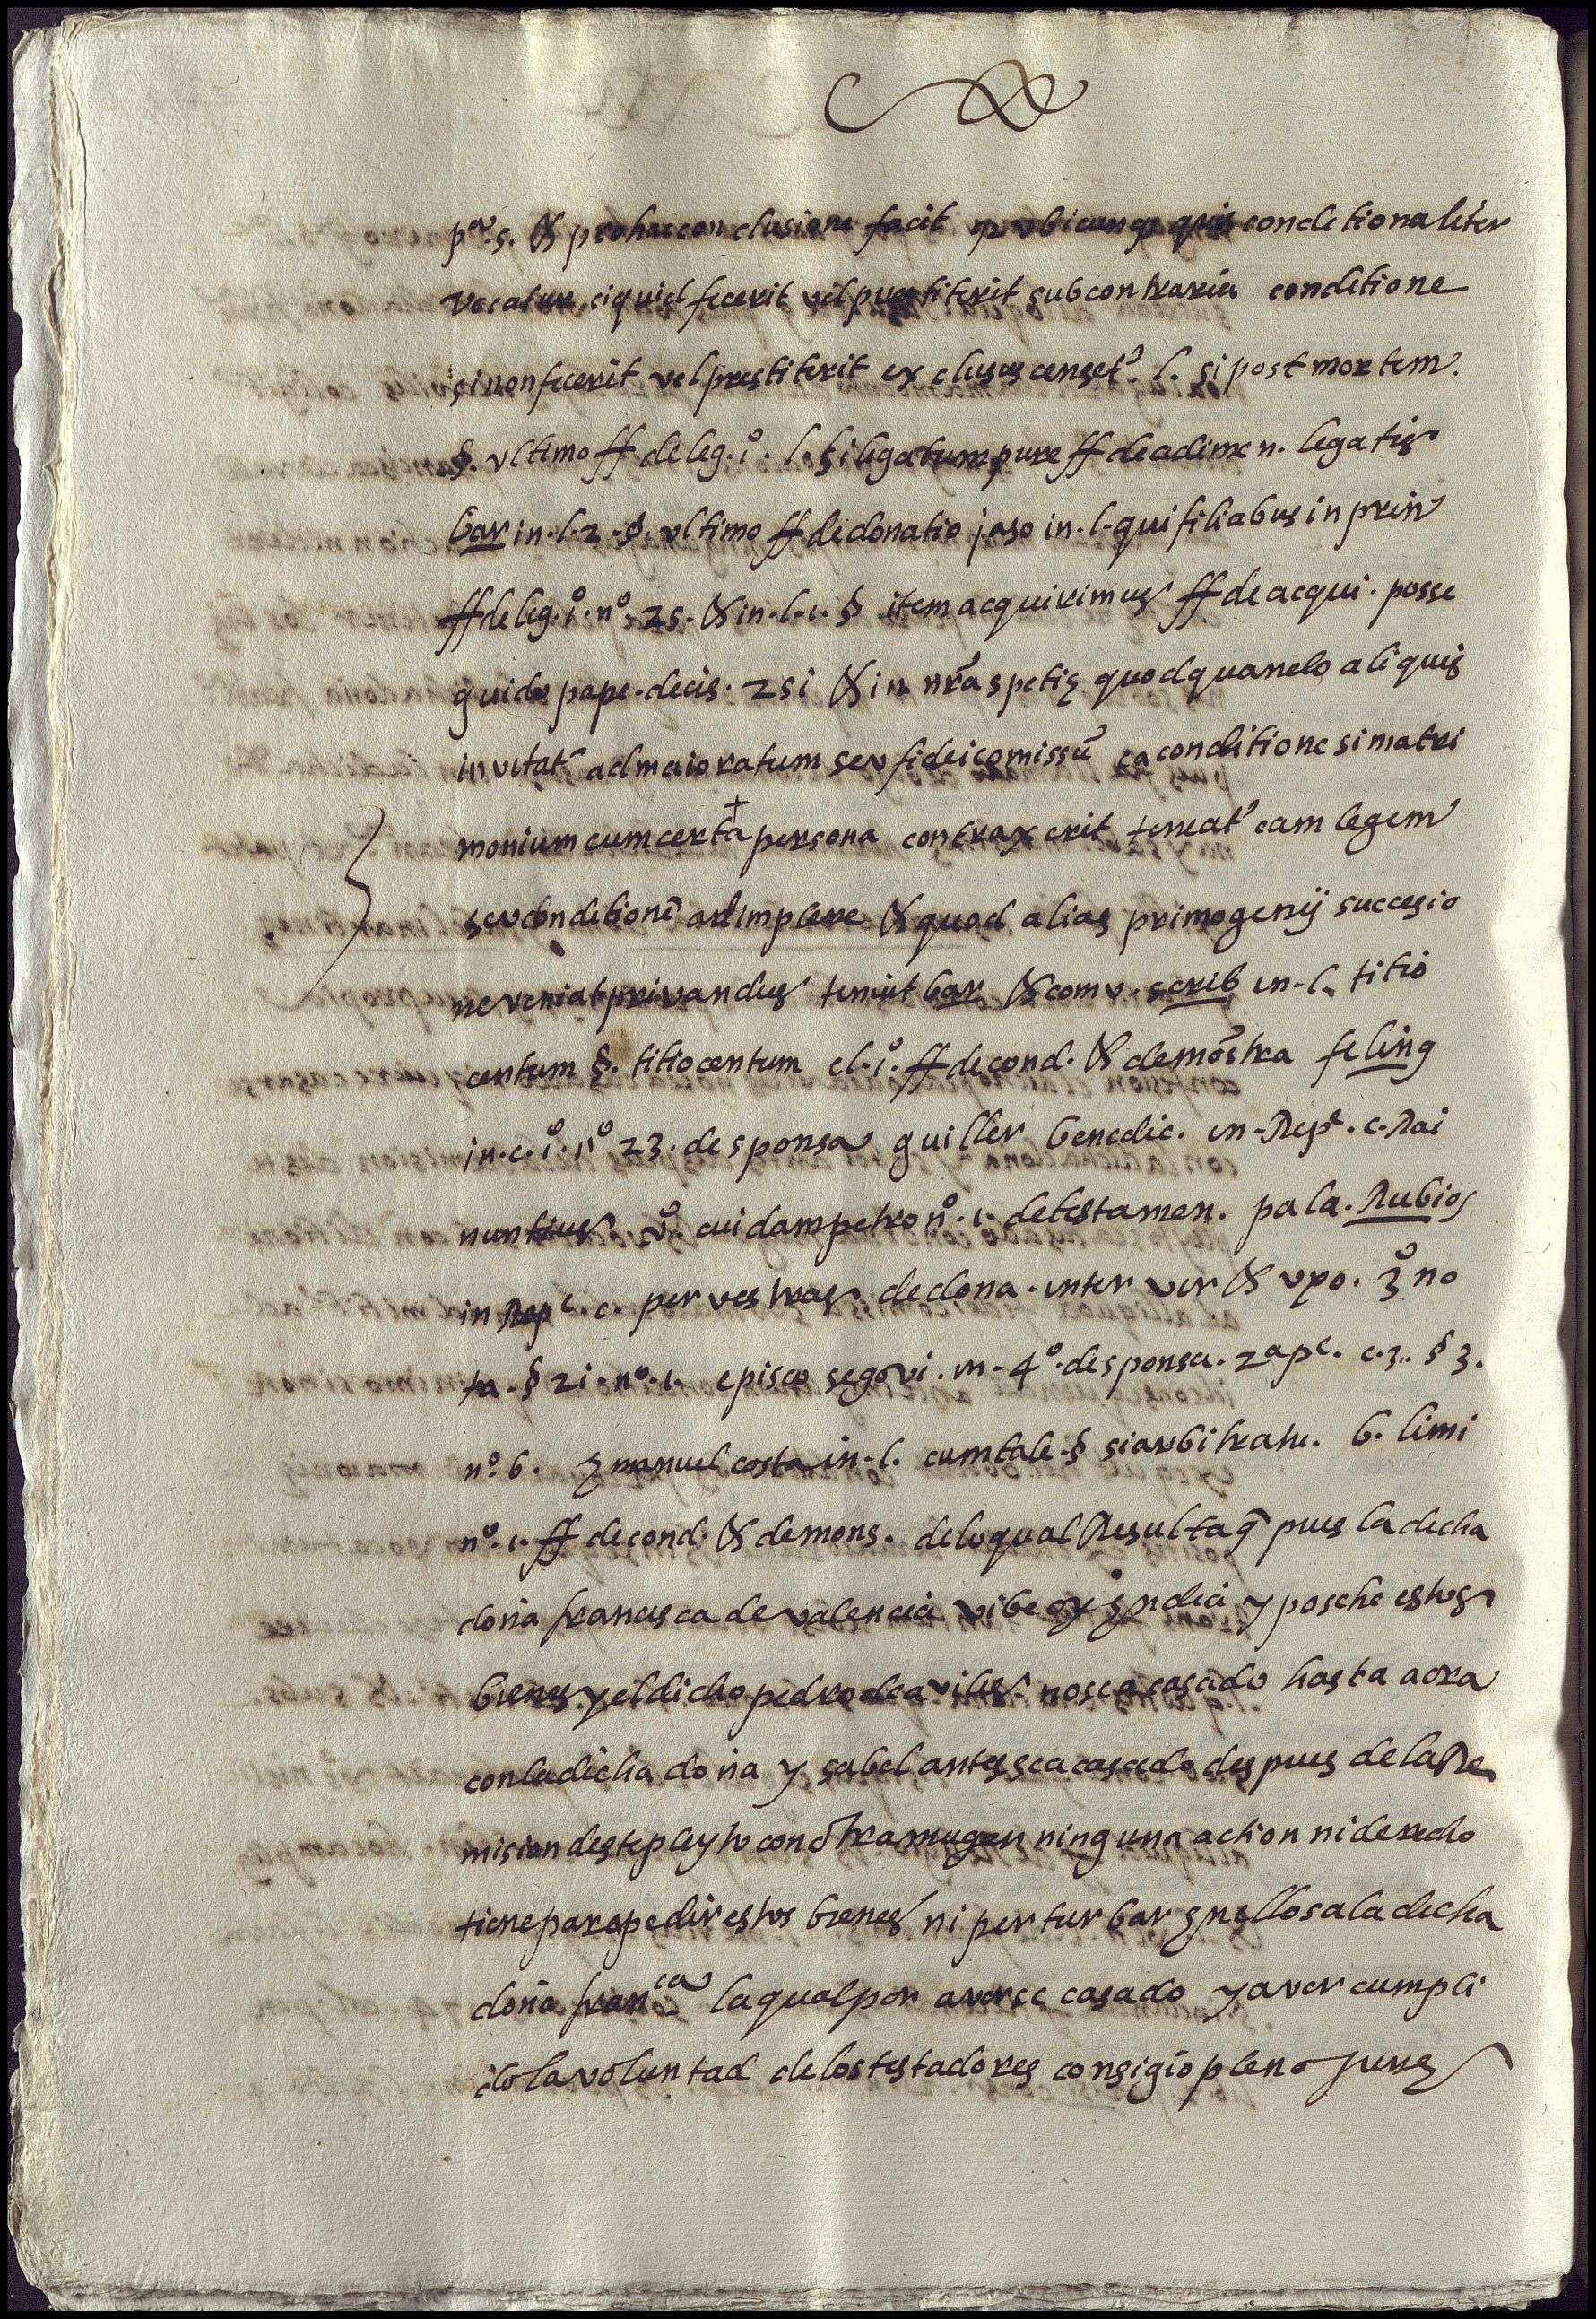 pa. 5. & pro hac conclusione facit q ubicunq quis conditionaliter
vocatur si quid fecerit vel prestiterit sub contraria conditione
si non fecerit vel prestiterit exclusus censet l. si post mortem.
§. ultimo ff de leg. i.º l. si legatum pure ff de adimen. legatis
bar in. l. 2. §. ultimo ff de donatio jaso in. l. qui filiabus in prin
ff de leg. iº. nº. 25. & in. l. 1. § item acquirimus ff de acqui. posse
guido pape. decis. 251 & in nra spetie quod quando aliquis
invitat ad maioratum seu fideicomissu ea conditione si matri
monium cum certa + persona contraxerit teneat eam legem
seu conditione adimplere & quod alias primogenij succesio
ne veniat privandus tenuit bar & comu. scrib in. l. titio
centum §. titio centum el. iº. ff de cond. & demostra feling
in. c. iº. nº 23. de sponsa guiller benedic. in. Repe. c. Rai
nuntius. vº. cuidam petro nº. 1. de testamen. pala. Rubios
in Repe. c. per vestras. de dona. inter vir & uxo. 3º no
ta. § 21. nº. 1. episco segovi. in. 4º. de sponsa. 2ª pe. c. 3. § 3.
nº. 6. Emanuel costa in. l. cum tale. § si arbitratu. 6. limi
nº. 1. ff de cond. & demons. de lo qual Resulta q pues la dicha
doña francisca de valencia vibe oy en dia y posehe estos
bienes y el dicho pedro de aviles no se a casado hasta aora
con la dicha doña ysabel antes se a casado despues de la Re
mision deste pleyto con otra muger ninguna action ni derecho
tiene para pedir estos bienes ni perturbar en ellos a la dicha
doña franca la qual por averse casado y aver cumpli
do la voluntad de los testadores consigio pleno jure